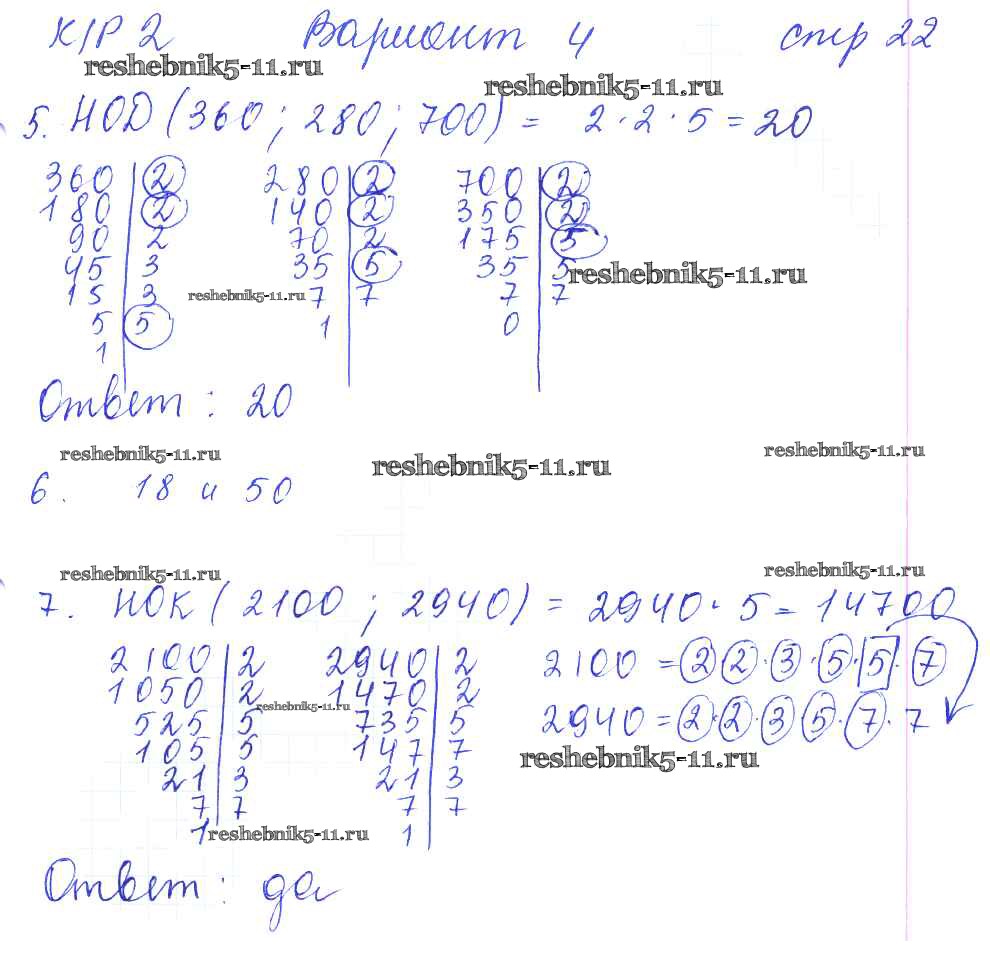 К/Р 2 Вариант 4 стр 22
reshebnik5-11.ru
reshebnik5-11.ru
5. НОД (360 ; 280 ; 700) = 2 · 2 · 5 = 20
360 | 2 280 | 2 700 | 2
180 | 2 140 | 2 350 | 2
90 | 2 70 | 2 175 | 5
45 | 3 35 | 5 35 | 5 reshebnik5-11.ru
15 | 3 reshebnik5-11.ru 7 | 7 7 | 7
5 | 5 1 | 0 |
1 |
Ответ : 20
reshebnik5-11.ru reshebnik5-11.ru reshebnik5-11.ru
6. 18 и 50
reshebnik5-11.ru reshebnik5-11.ru
7. НОК ( 2100 ; 2940) = 2940 · 5 = 14700
2100 | 2 2940 | 2 2100 = 2 2 · 3 · 5 · 5 · 7
1050 | 2 reshebnik5-11.ru 1470 | 2
525 | 5 735 | 5 2940 = 2 · 2 · 3 5 · 7 · 7
105 | 5 147 | 7 reshebnik5-11.ru
21 | 3 21 | 3
7 | 7 7 | 7
1 | reshebnik5-11.ru 1 |
Ответ : да